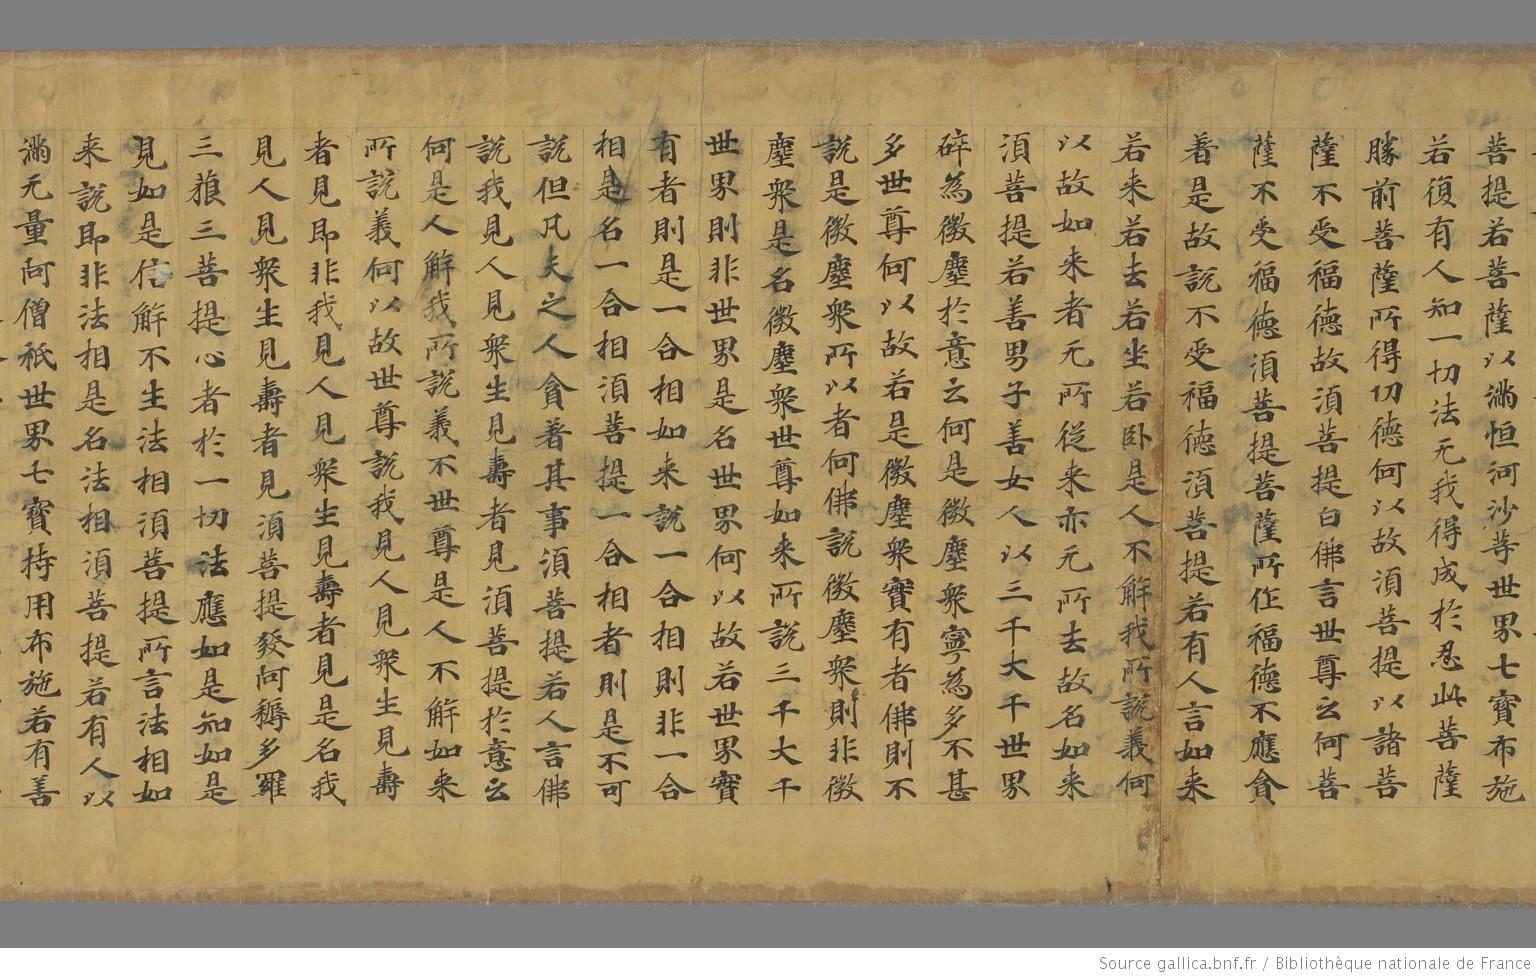 菩提若菩薩以滿恒河沙等世界七寶布施
若復有人知一切法无我得成於忍此菩薩
勝前菩薩所得切德何以故須菩提以諸菩
薩不受福德故須菩提白佛言世尊云何菩
薩不受福德須菩提菩薩所作福德不應貪
着是故說不受福德須菩提若有人言如来
若来若去若坐若卧是人不解我所說義何
以故如来者无所從来亦无所去故名如来
須菩提若善男子善女人以三千大千世界
碎為微塵於意云何是微塵衆寧為多不甚
多世尊何以故若是微塵衆實有者佛則不
說是微塵衆所以者何佛說微塵衆則非微
塵衆是名微塵衆世尊如来所說三千大千
世界則非世界是名世界何以故若世界實
有者則是一合相如来說一合相則非一合
相是名一合相須菩提一合相者則是不可
說但凡夫之人貪著其事須菩提若人言佛
說我見人見衆生見壽者見須菩提於意云
何是人解我所說義不世尊是人不解如来
所說義何以故世尊說我見人見衆生見壽
者見即非我見人見衆生見壽者見是名我
見人見衆生見壽者見須菩提發阿耨多羅
三藐三菩提心者於一切法應如是知如是
見如是信解不生法相須菩提所言法相如
来說即非法相是名法相須菩提若有人以
滿无量阿僧祇世界七寶持用布施若有善
Source gallica.bnf.fr / Bibliothèque nationale de France